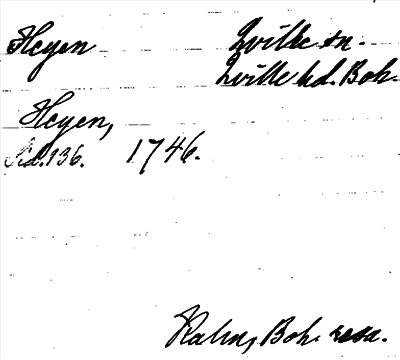 Heyen Qville sn.
Qville hd. Boh.
Heyen,
Ad. 136. 1746.
Kalm, Boh. resa.